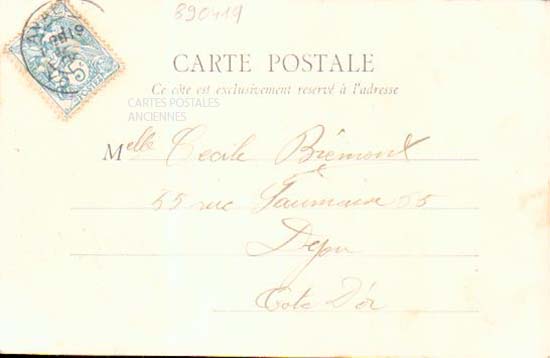 890419
CARTE POSTALE
Ce côté est exclusivement reservé à l'adresse
CARTES POSTALES
ANCIENNES
Melle Cecile Brémont
55 rue 55
Cote D'or